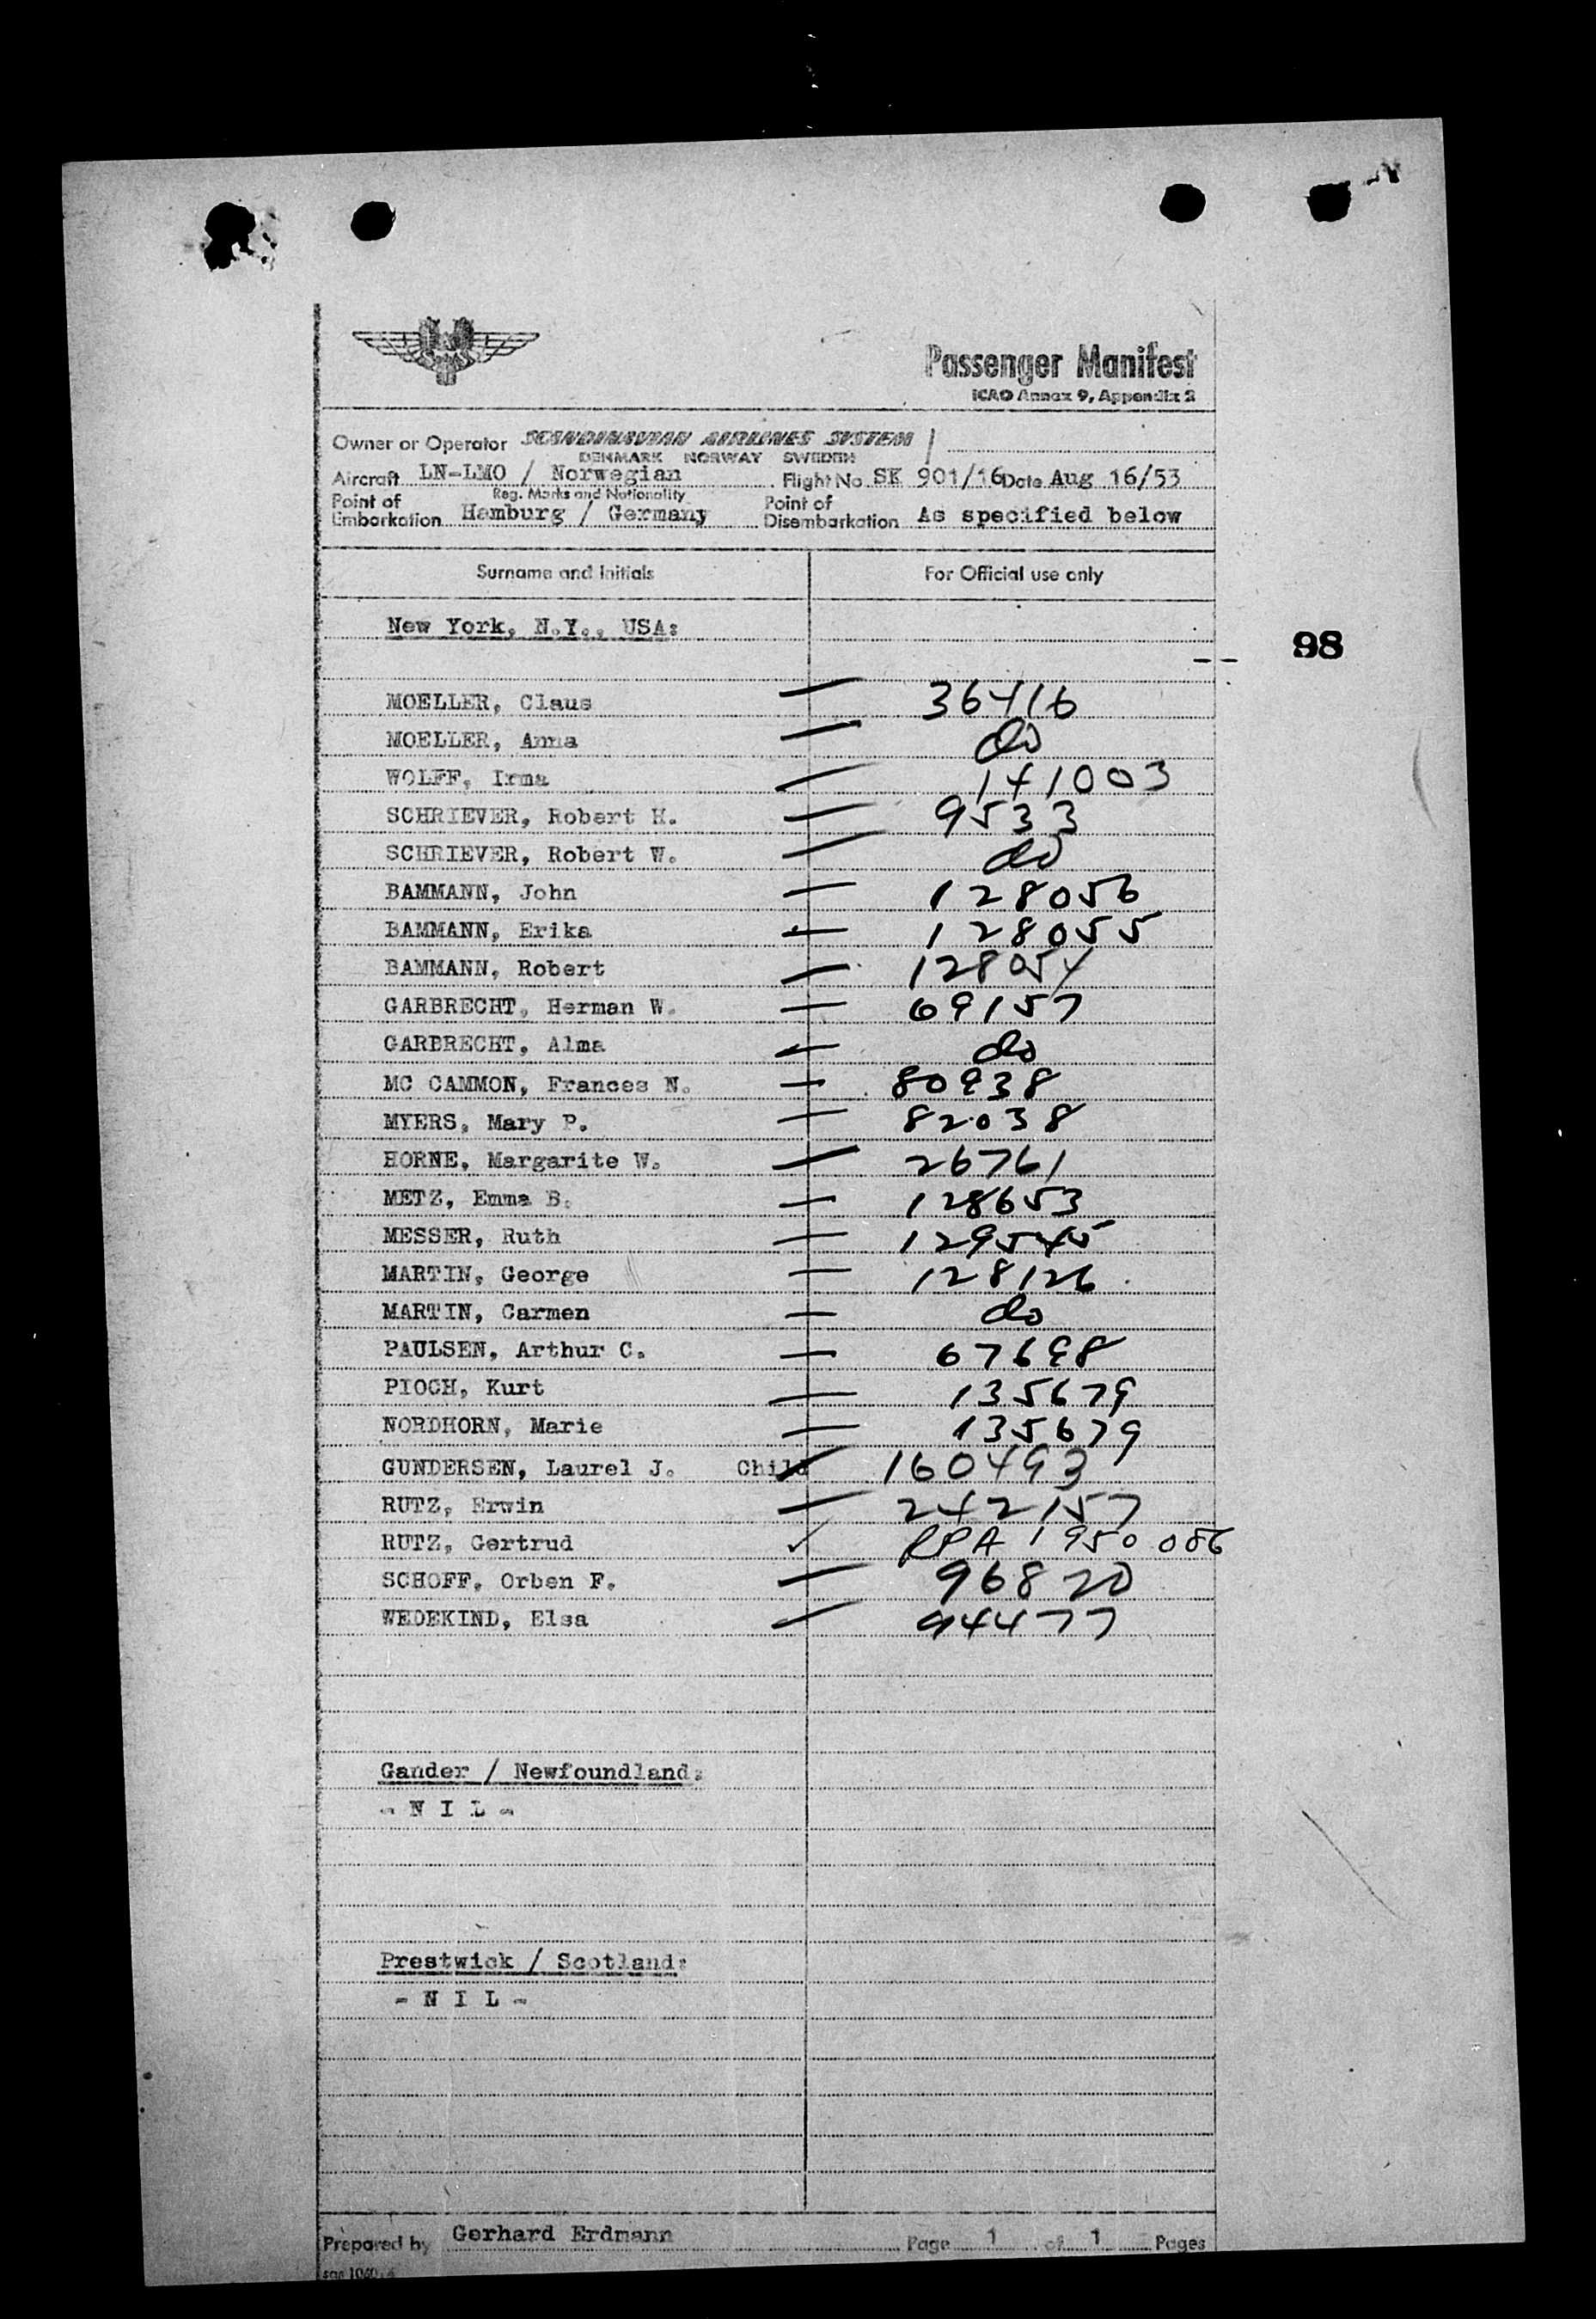 Passenger Manifest
ICAO Annex 9, Appendix 2
Owner or Operator SCANDINAVIAN AIRLINES SYSTEM
DENMARK NORWAY SWEDEN
Aircraft LN-LMO / Norwegian Flight No. SK 901/16 Date Aug 16/53
Reg. Marks and Nationality
Point of Embarkation Hamburg / Germany Point of Disembarkation As specified below
Surname and Initials For Official use only
New York, N.Y., USA:
98
MOELLER, Claus — 36416
MOELLER, Anna — do
WOLFF, Irma — 141003
SCHRIEVER, Robert H. — 9533
SCHRIEVER, Robert W. — do
BAMMANN, John — 128056
BAMMANN, Erika — 128055
BAMMANN, Robert — 128054
GARBRECHT, Herman W. — 69157
GARBRECHT, Alma — do
MC CAMMON, Frances N. — 80938
MYERS, Mary P. — 82038
HORNE, Margarite W. — 26761
METZ, Emma B. — 128653
MESSER, Ruth — 129545
MARTIN, George — 128126
MARTIN, Carmen — do
PAULSEN, Arthur C. — 67698
PIOCH, Kurt — 135679
NORDHORN, Marie — 135679
GUNDERSEN, Laurel J. Child — 160493
RUTZ, Erwin — 242157
RUTZ, Gertrud ✓ RPA 1950086
SCHOFF, Orben F. — 96820
WEDEKIND, Elsa — 94477
Gander / Newfoundland:
- N I L -
Prestwick / Scotland:
- N I L -
Prepared by Gerhard Erdmann Page 1 of 1 Pages